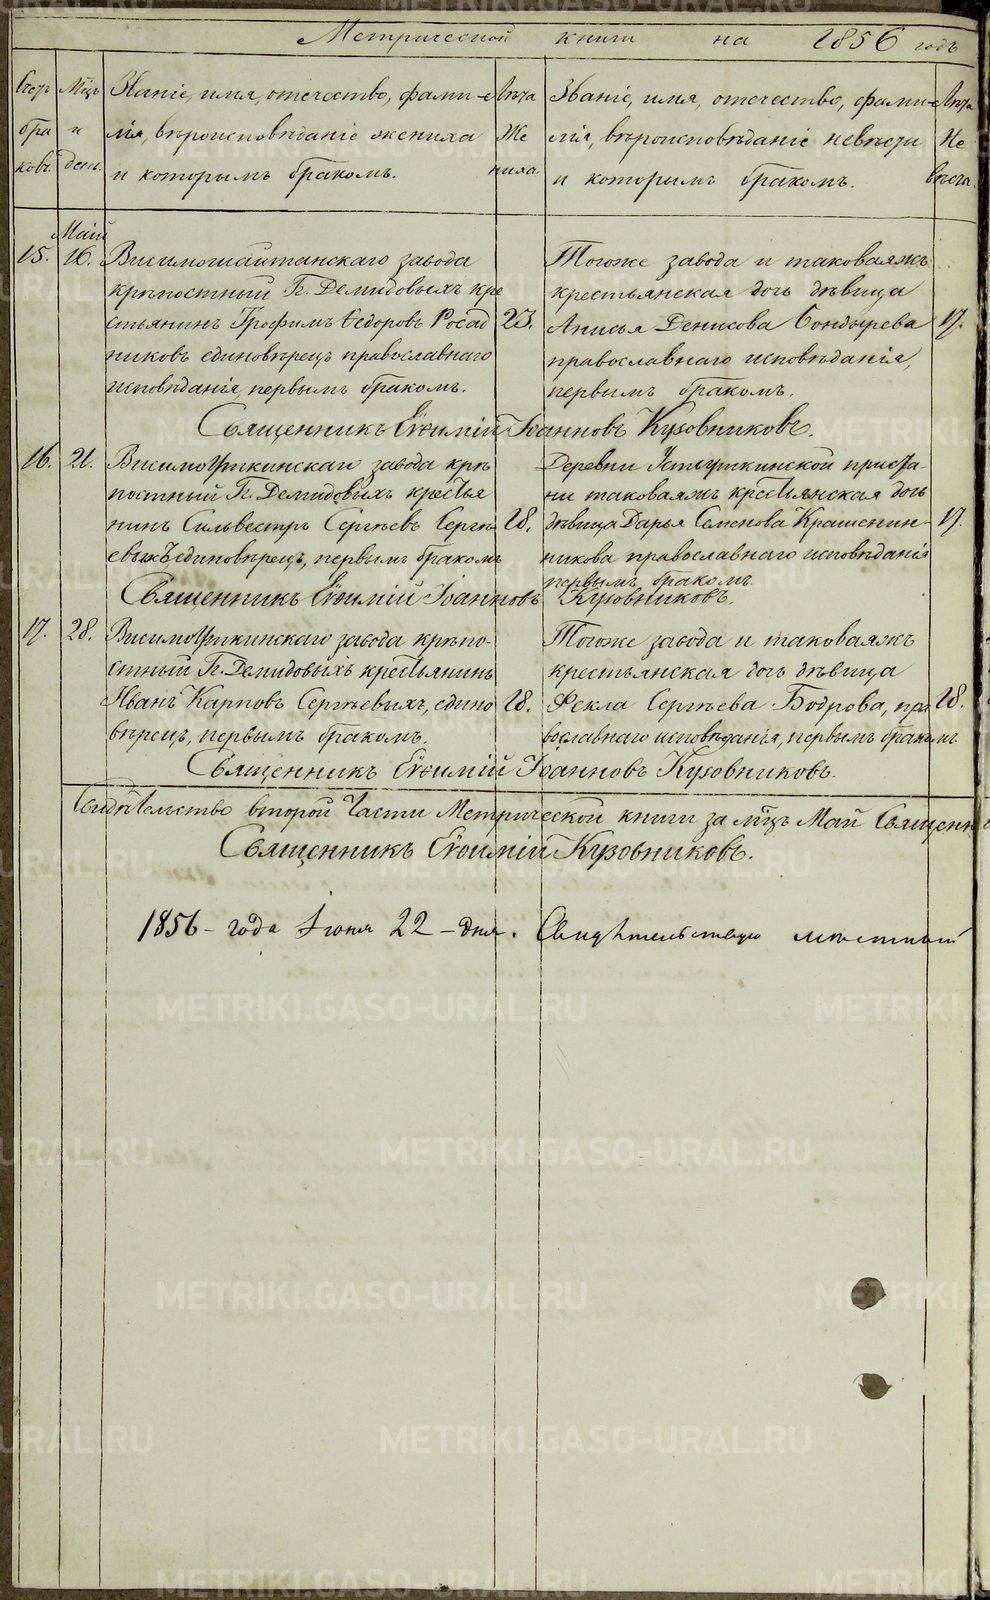 Метрической книги на 1856 годъ
Счетъ браковъ.
Мѣцъ и день.
Званіе, имя, отечество, фами-
лія, вѣроисповѣданіе жениха
и которымъ бракомъ.
Лѣта Жениха.
Званіе, имя, отечество, фами-
лія, вѣроисповѣданіе невѣсты
и которымъ бракомъ.
Лѣта Невѣсты.
Май
15. 16. Висимошайтанскаго завода
крѣпостный Гг. Демидовыхъ кре
стьянинъ Трофимъ Ѳедоровъ Росад 23.
никовъ единовѣрецъ православнаго
исповѣданія, первымъ бракомъ.
Тогоже завода и таковаяжъ
крестьянская дочь дѣвица
Анисья Денисова Бондырева 17.
православнаго исповѣданія,
первымъ бракомъ.
Священникъ Евѳимій Іоанновъ Кузовниковъ.
16. 21. Висимоуткинскаго завода крѣ
постный Гг. Демидовыхъ крестья
нинъ Сильвестръ Сергѣевъ Сергѣ 28.
евыхъ единовѣрецъ, первымъ бракомъ
Деревни Усть-уткинской приста-
ни таковаяжъ крестьянская дочь
дѣвица Дарья Семенова Крашенин- 17.
никова православнаго исповѣданія
первымъ бракомъ.
Священникъ Евѳимій Іоанновъ Кузовниковъ.
17. 28. Висимоуткинскаго завода крѣпо-
стный Гг. Демидовыхъ крестьянинъ
Иванъ Карповъ Сергѣевыхъ, едино 28.
вѣрецъ, первымъ бракомъ.
Тогоже завода и таковаяжъ
крестьянская дочь дѣвица
Ѳекла Сергѣева Бодрова, пра 28.
вославнаго исповѣданія, первымъ бракомъ
Священникъ Евѳимій Іоанновъ Кузовниковъ.
Свидѣтельство второй части Метрической книги за мѣцъ Май Священн
Священникъ Евѳимій Кузовниковъ.
1856 - года Іюня 22 - дня. Свидѣтельствую мѣстный
METRIKI.GASO-URAL.RU